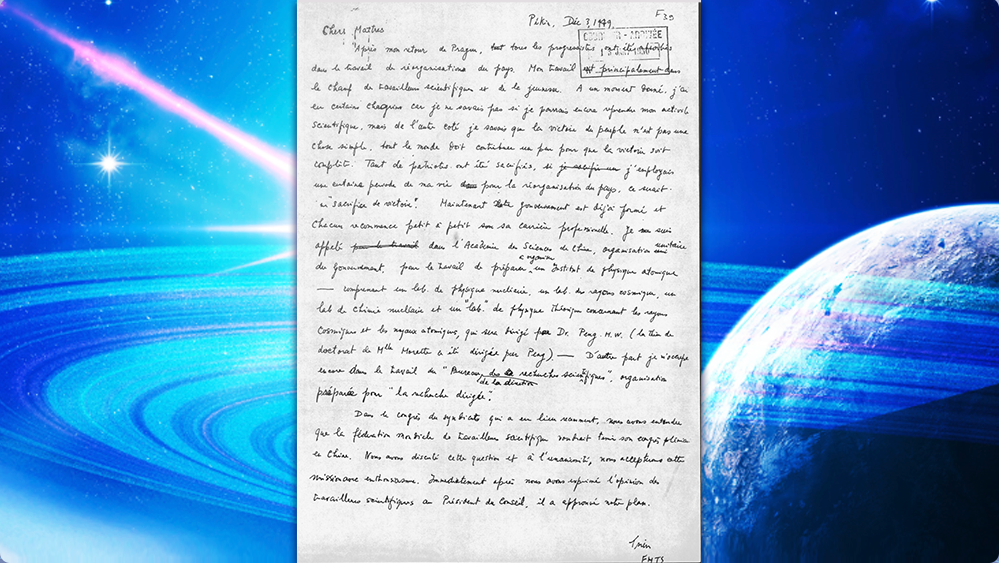 F35
Pékin, Déc 3, 1949.
Chers Maîtres
COURRIER - ARRIVÉE
Après mon retour de Prague, tout tous les progressistes ont été absorbés
dans le travail de réorganisations du pays. Mon travail est principalement dans
le champ de travailleurs scientifiques et de la jeunesse. A un moment donné, j'ai
eu certains chagrins car je ne savais pas si je pourrais encore reprendre mon activité
scientifique, mais de l'autre coté je savais que la victoire du peuple n'est pas une
chose simple, tout le monde doit contribuer un peu pour que la victoire soit
complète. Tant de patriotes ont été sacrifiés, si j'employais
une certaine periode de ma vie pour la réorganisation du pays, ce serait
un "sacrifice de victoire". Maintenant notre gouvernement est déjà formé et
chacun recommence petit à petit son sa carrière professionnelle. Je suis
appelé pour le travail dans l'Académie des Sciences de Chine, organisation unitaire
du Gouvernement, pour le travail de préparer, un Institut de physique atomique
à organiser
— comprenant un lab. de physique nucléaire, un lab. des rayons cosmiques, un
lab de chimie nucléaire et un "lab." de physique théorique concernant les rayons
cosmiques et les noyaux atomiques, qui sera dirigé par Dr. Peng H.W. (la thèse de
doctorat de Mlle Morette a été dirigée par Peng) — D'autre part je m'occupe
encore dans le travail du "Bureau des recherches scientifiques", organisation
de la direction
préparée pour "la recherche dirigée".
Dans le congrès du syndicats qui a eu lieu récemment, nous avons entendu
que la fédération mondiale de travailleurs scientifiques voudrait tenir son congrès plénier
en Chine. Nous avons discuté cette question et à l'unanimité, nous acceptons cette
mission avec enthousiasme. Immédiatement après nous avons exprimé l'opinion des
travailleurs scientifiques au Président du Conseil, il a approuvé notre plan.
Tsien
FMTS